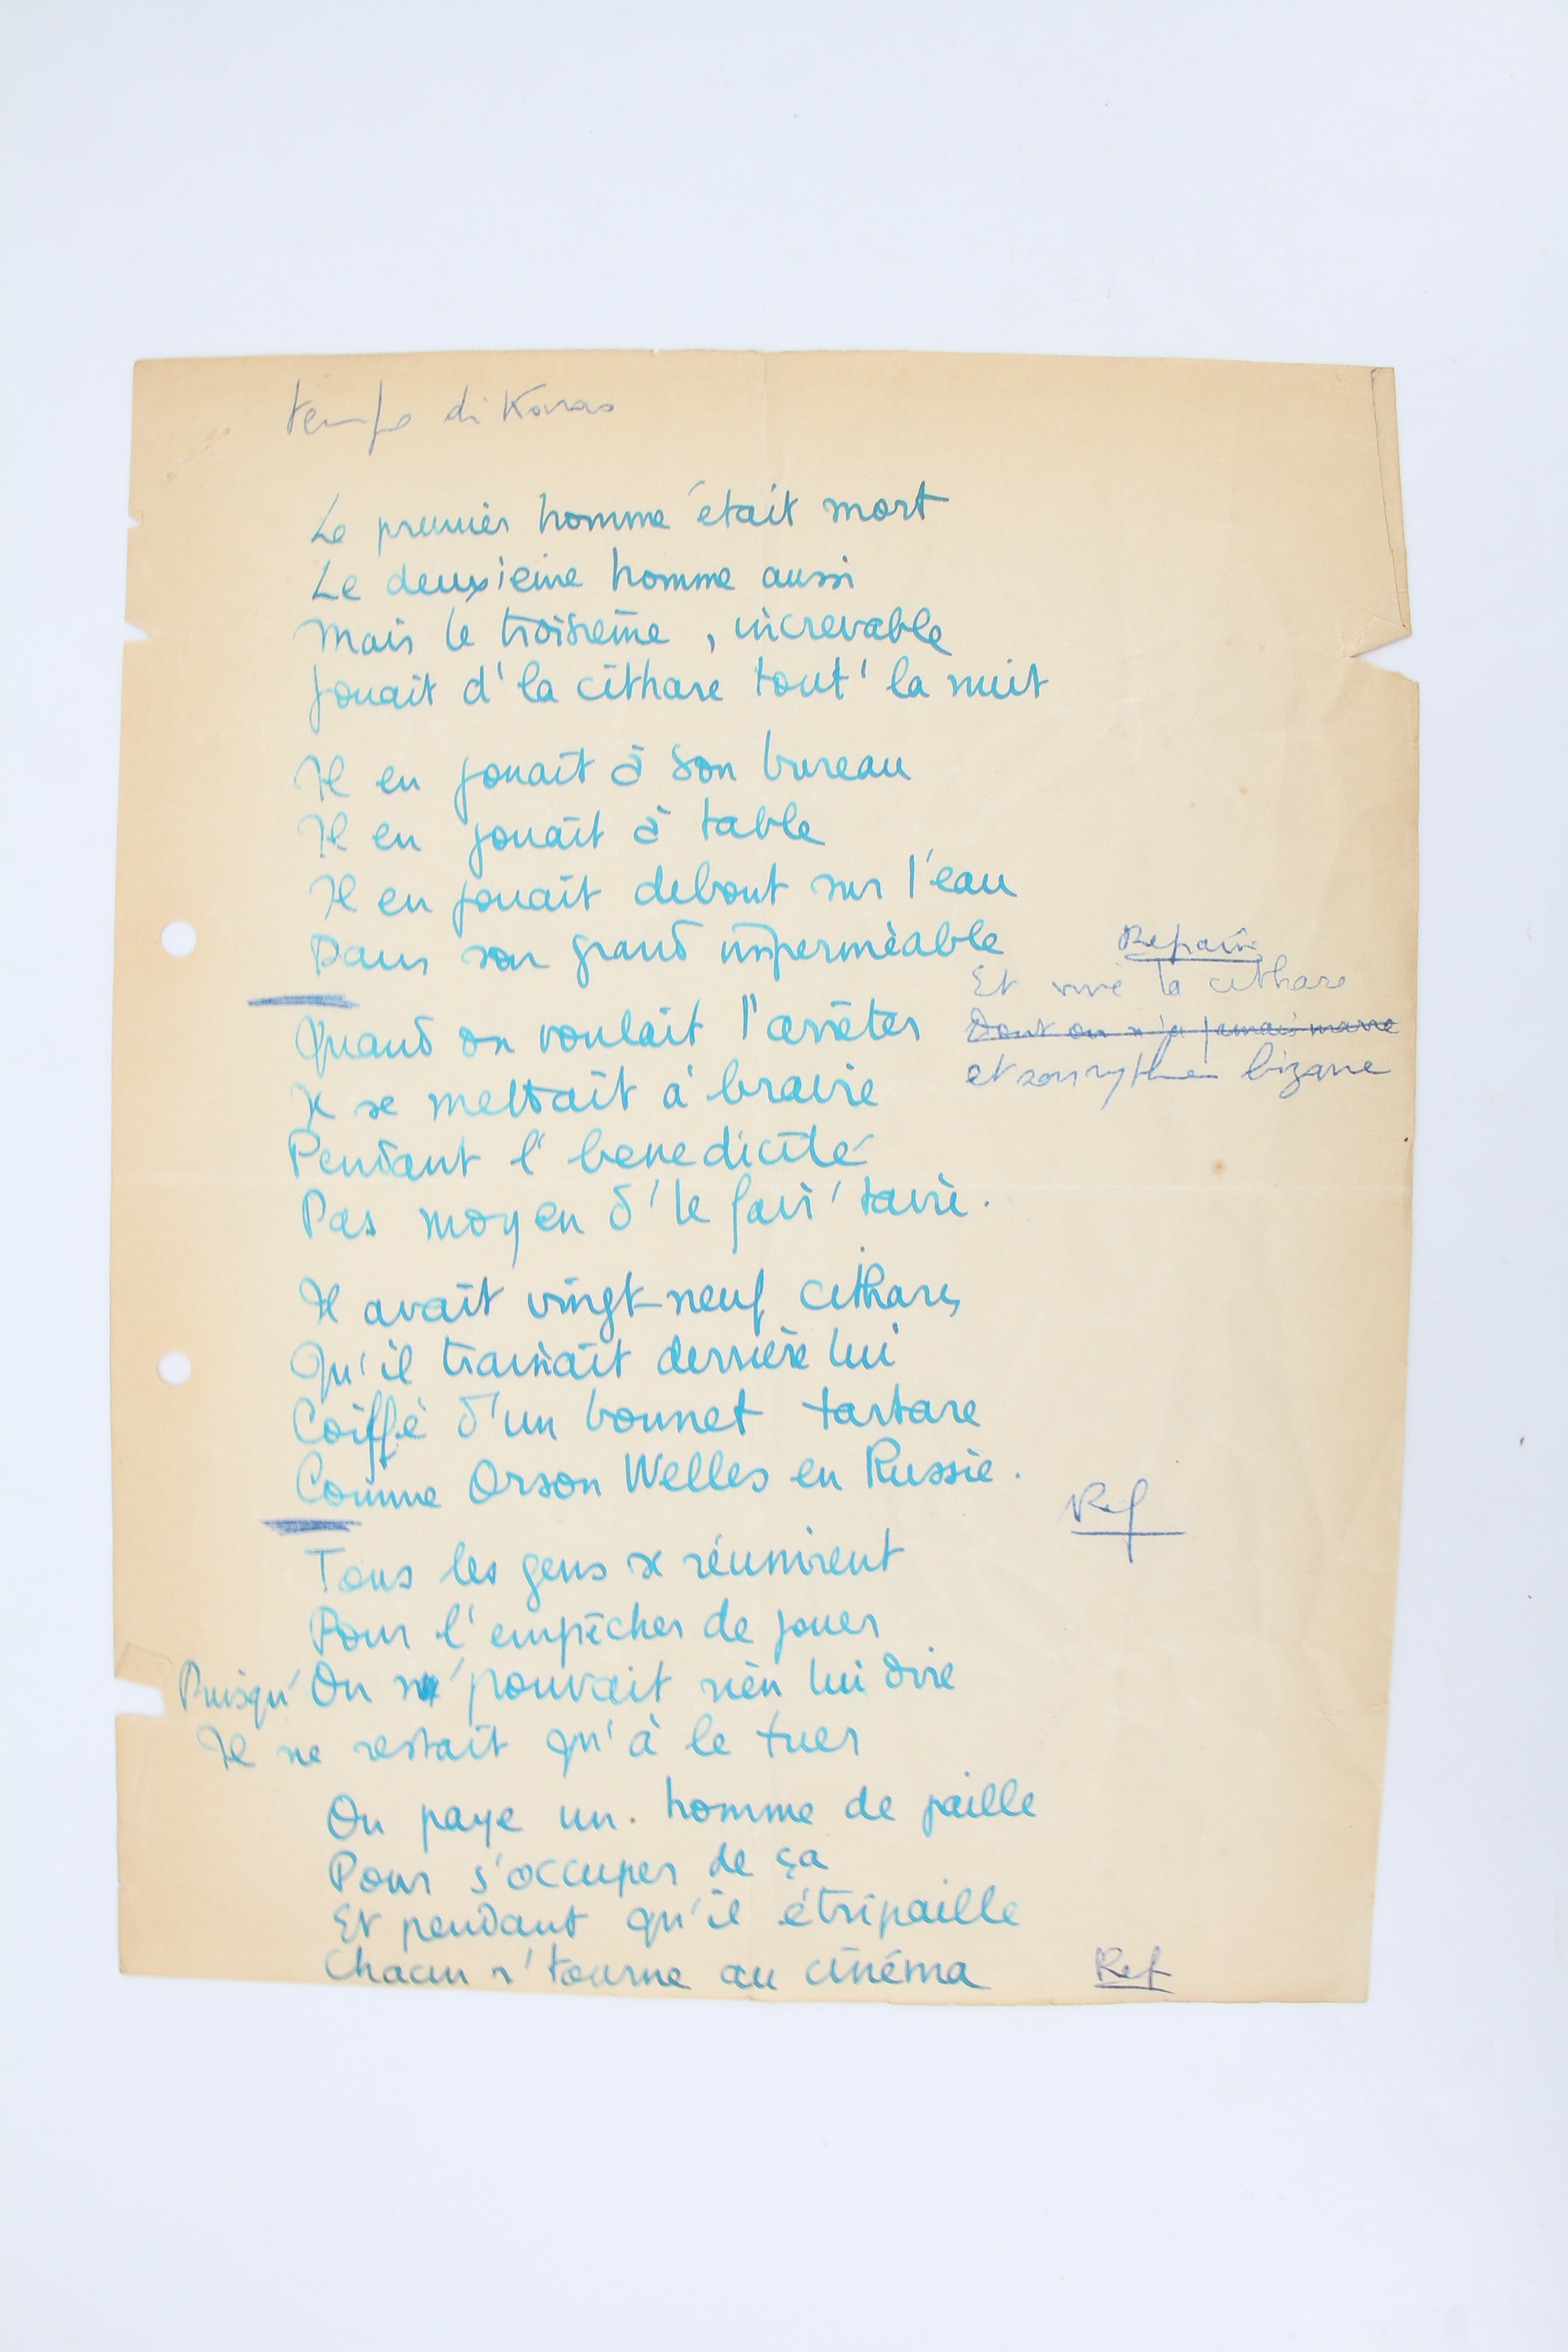 tempo di Karas
Le premier homme était mort
Le deuxième homme aussi
Mais le troisième, increvable
Jouait d'la cithare tout' la nuit
Il en jouait à son bureau
Il en jouait à table
Il en jouait debout sur l'eau
Dans son grand imperméable
Refrain
Et vive la cithare
Dont on n'a jamais marre
et son rythme bizarre
Quand on voulait l'arrêter
Il se mettait à braire
Pendant l'benedicité
Pas moyen d'le fair' taire.
Il avait vingt-neuf cithares
Qu'il trainait derrière lui
Coiffé d'un bonnet tartare
Comme Orson Welles en Russie.
Ref
Tous les gens se réunirent
Pour l'empêcher de jouer
Puisqu'On n' pouvait rien lui dire
Il ne restait qu'à le tuer
On paye un homme de paille
Pour s'occuper de ça
Et pendant qu'il étripaille
Chacun r'tourne au cinéma
Ref